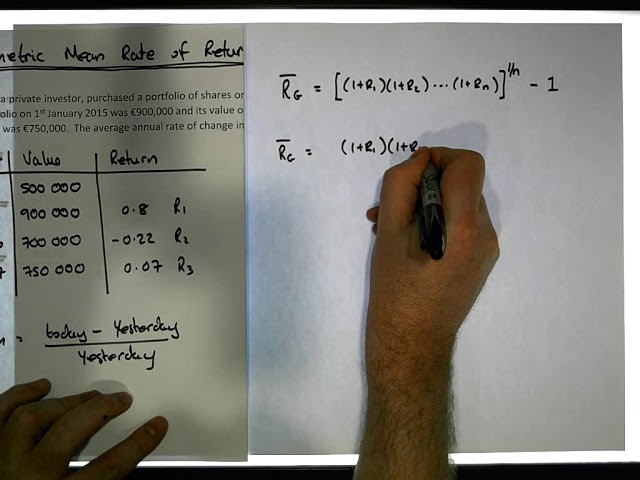 metric Mean Rate of Retur
a private investor, purchased a portfolio of shares or
olio on 1st January 2015 was €900,000 and its value o
was €750,000. The average annual rate of change in
Value Return
500 000
900 000 0.8 R1
700 000 -0.22 R2
750 000 0.07 R3
= today - Yesterday
Yesterday
R̅G = [(1+R1)(1+R2)...(1+Rn)]^1/n - 1
R̅G = (1+R1)(1+R